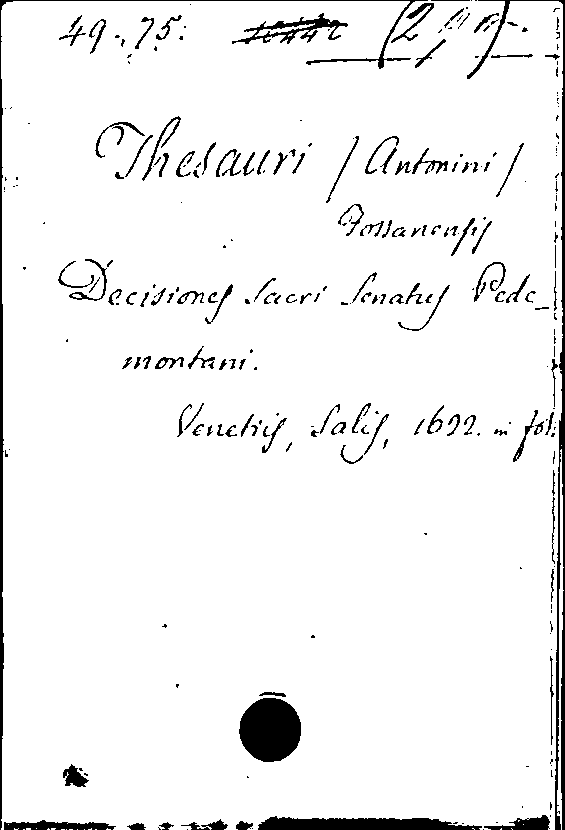 49.75.
Thesauri / Antonini /
Fossanensis
Decisiones Sacri Senatus Pede_
montani.
Venetiis, Salis, 1622. in fol.